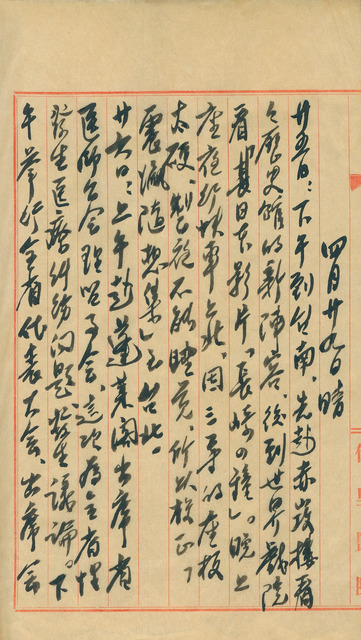 四月廿九日晴
廿五日：下午到台南、先赴赤崁樓看
歷史館的新陣容、後到世界戲院
看「甚日本影片「長崎の鐘」。晚上
座夜行快車上北、因三等的座板
太硬、整夜不能睡覺、所以校正了
震瀛隨想集」至台北。
廿六日：上午赴蓬萊閣出席省
醫師公会理監事会、這次為全省惧
發生医療糾紛問題、發生議論。下
午舉行全省代表大会、出席会